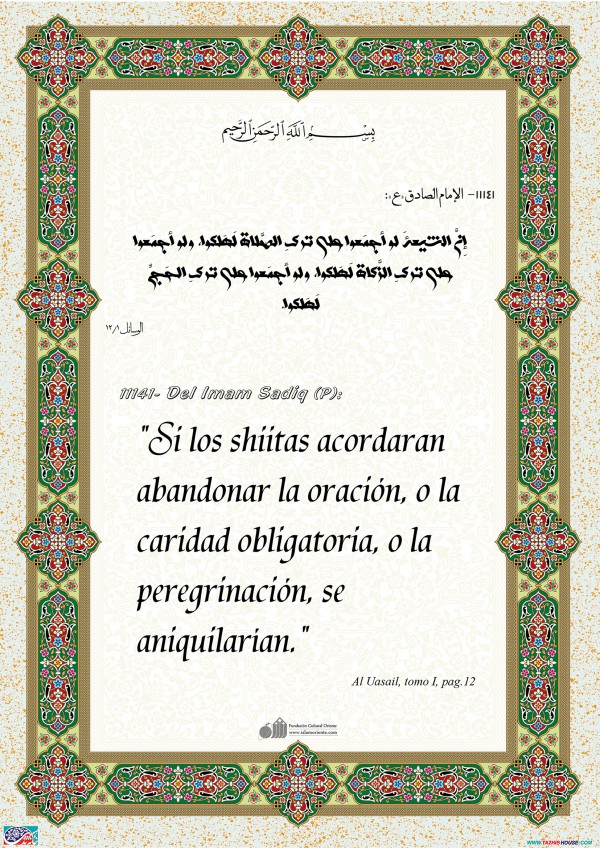 بِسْمِ اللَّهِ الرَّحْمَنِ الرَّحِيمِ
١١١٤١- الإمام الصادق «ع»:
إنَّ الشّيعةَ لو أجمَعوا على تركِ الصَّلاةِ لَهَلَكوا. ولو أجمَعوا
على تركِ الزَّكاةِ لَهَلَكوا. ولو أجمَعوا على تركِ الحَجِّ
لَهَلَكوا.
الوسائل ١٢/١
11141- Del Imam Sadiq (P):
"Si los shiitas acordaran
abandonar la oración, o la
caridad obligatoria, o la
peregrinación, se
aniquilarían."
Al Uasail, tomo I, pag.12
Fundación Cultural Oriente
www.islamoriente.com
WWW.TAZHIBHOUSE.COM